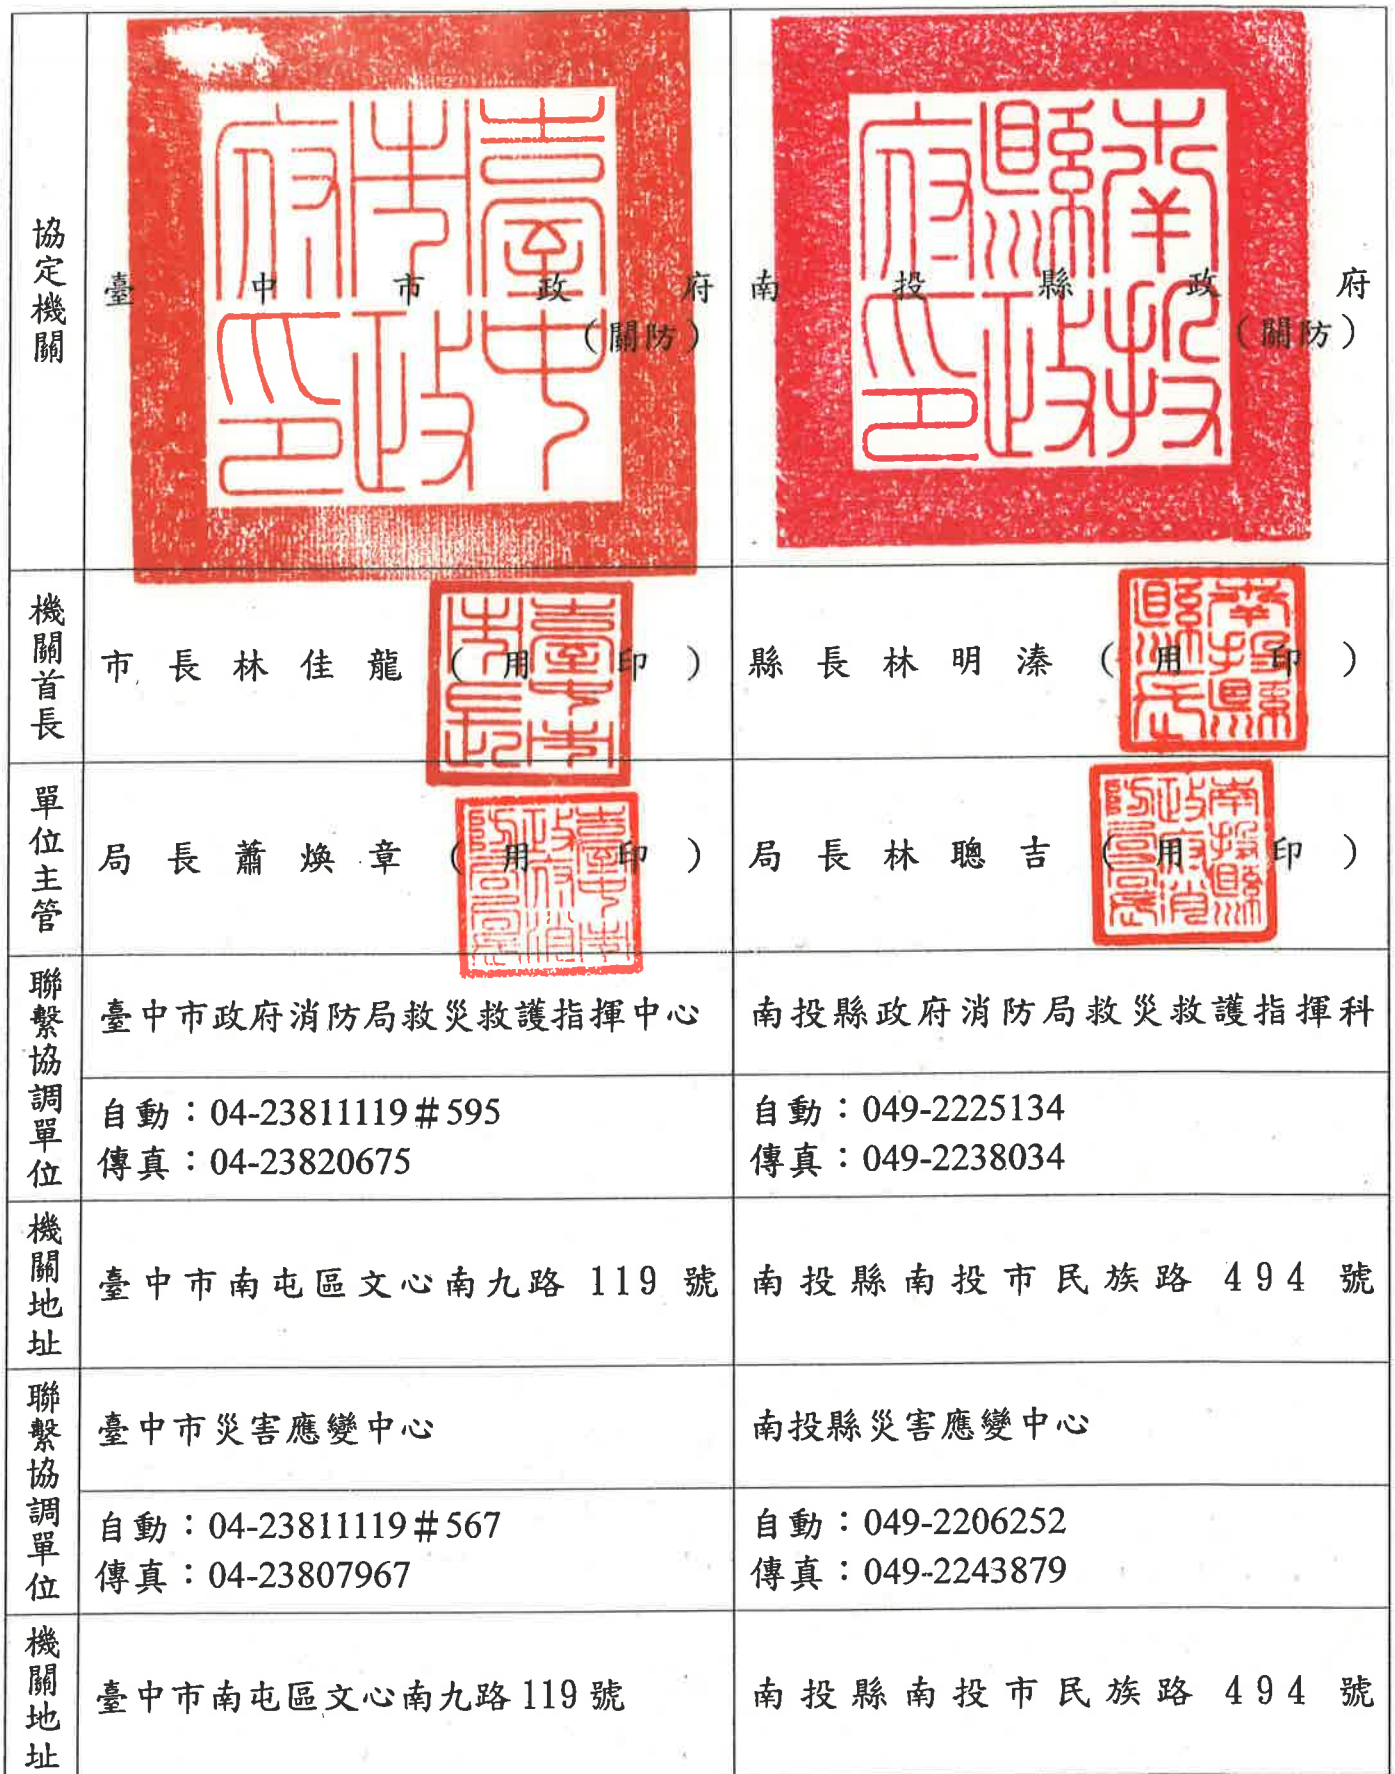 協定機關
臺中市政府
(關防)
南投縣政府
(關防)
臺中市政府印
南投縣政府印
機關首長
市長林佳龍(用印)
縣長林明溱(用印)
臺中市市長
南投縣縣長
單位主管
局長蕭煥章(用印)
局長林聰吉(用印)
臺中市政府消防局局長
南投縣政府消防局局長
聯繫協調單位
臺中市政府消防局救災救護指揮中心
南投縣政府消防局救災救護指揮科
自動：04-23811119#595
傳真：04-23820675
自動：049-2225134
傳真：049-2238034
機關地址
臺中市南屯區文心南九路 119 號
南投縣南投市民族路 494 號
聯繫協調單位
臺中市災害應變中心
南投縣災害應變中心
自動：04-23811119#567
傳真：04-23807967
自動：049-2206252
傳真：049-2243879
機關地址
臺中市南屯區文心南九路 119 號
南投縣南投市民族路 494 號